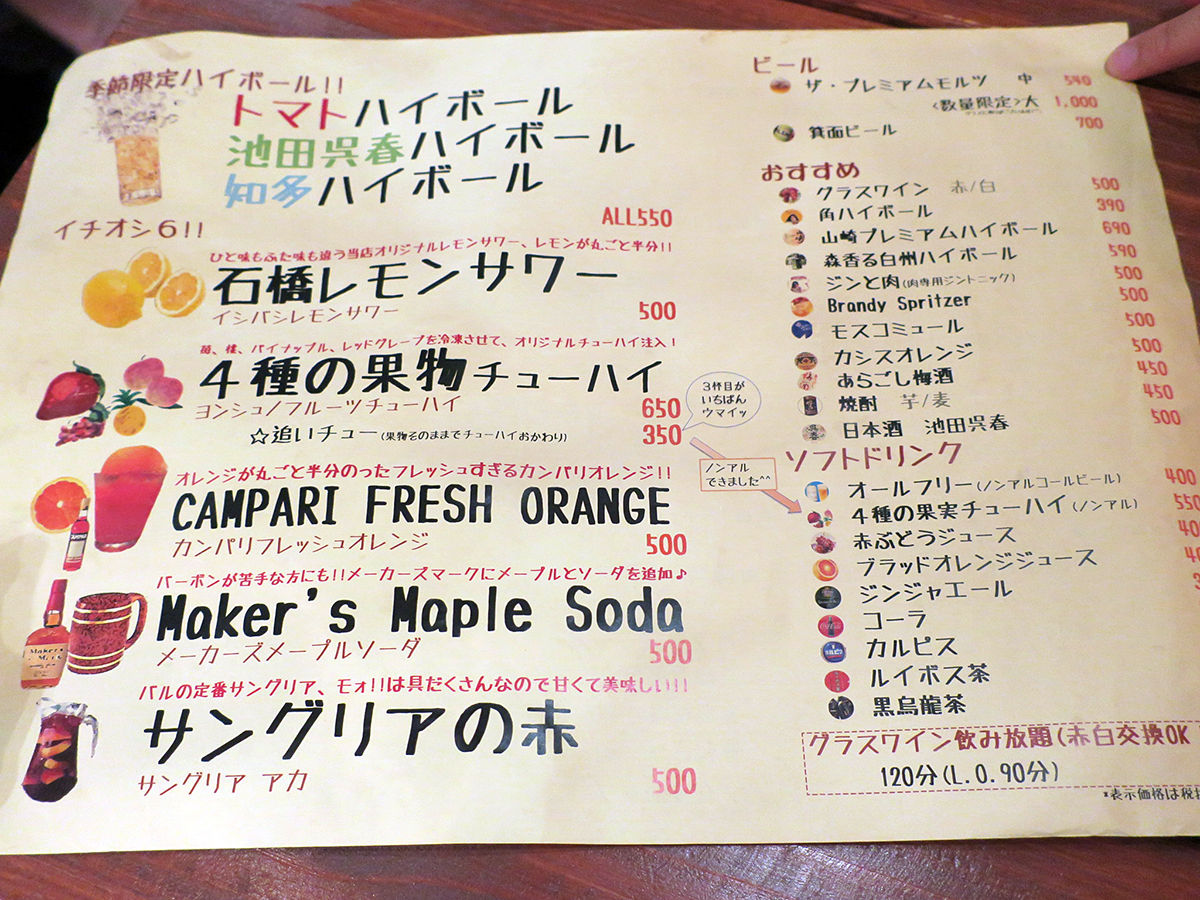 季節限定ハイボール!!
トマトハイボール
池田呉春ハイボール
知多ハイボール
ALL550
イチオシ6!!
ひと味もふた味も違う当店オリジナルレモンサワー、レモンが丸ごと半分!!
石橋レモンサワー
イシバシレモンサワー 500
苺、桃、パイナップル、レッドグレープを冷凍させて、オリジナルチューハイ注入!
4種の果物チューハイ
ヨンシュノフルーツチューハイ 650
☆追いチュー(果物そのままでチューハイおかわり) 350
3杯目が
いちばん
ウマイッ
ノンアル
できました^^
オレンジが丸ごと半分のったフレッシュすぎるカンパリオレンジ!!
CAMPARI FRESH ORANGE
カンパリフレッシュオレンジ 500
バーボンが苦手な方にも!!メーカーズマークにメープルとソーダを追加♪
Maker's Maple Soda
メーカーズメープルソーダ 500
バルの定番サングリア、モォ!!は具だくさんなので甘くて美味しい!!
サングリアの赤
サングリア アカ 500
ビール
ザ・プレミアムモルツ 中 540
<数量限定>大 1,000
箕面ビール 700
おすすめ
グラスワイン 赤/白 500
角ハイボール 390
山崎プレミアムハイボール 690
森香る白州ハイボール 590
ジンと肉(肉専用ジントニック) 500
Brandy Spritzer 500
モスコミュール 500
カシスオレンジ 500
あらごし梅酒 450
焼酎 芋/麦 450
日本酒 池田呉春 500
ソフトドリンク
オールフリー(ノンアルコールビール) 400
4種の果実チューハイ(ノンアル) 550
赤ぶどうジュース
ブラッドオレンジジュース
ジンジャエール
コーラ
カルピス
ルイボス茶
黒烏龍茶
グラスワイン飲み放題(赤白交換OK
120分(L.O.90分)
*表示価格は税